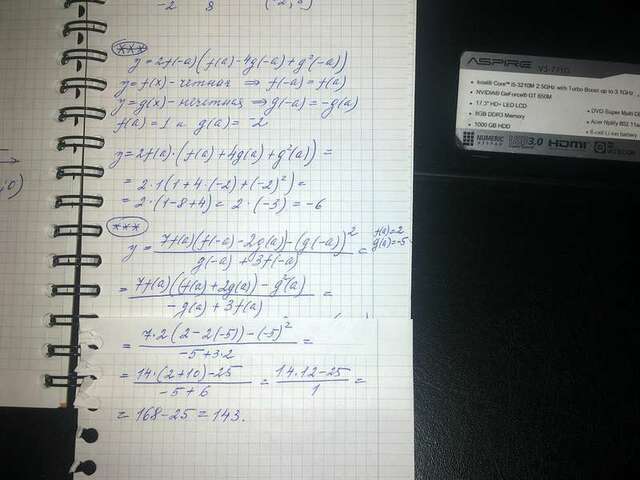 -2 8 (-2; 8)
***
y = 2f(-a)(f(a) - 4g(-a) + g²(-a))
y = f(x) - чётная ⇒ f(-a) = f(a)
y = g(x) - нечётная ⇒ g(-a) = -g(a)
f(a) = 1 и g(a) = -2
y = 2f(a)·(f(a) + 4g(a) + g²(a)) =
= 2·1(1 + 4·(-2) + (-2)²) =
= 2·(1 - 8 + 4) = 2·(-3) = -6
***
y = 7f(a)(f(-a) - 2g(a)) - (g(-a))² / g(-a) + 3f(-a) =
f(a) = 2
g(a) = -5
= 7f(a)(f(a) + 2g(a)) - g²(a) / -g(a) + 3f(a) =
= 7·2(2 - 2(-5)) - (-5)² / -5 + 3·2 =
= 14·(2 + 10) - 25 / -5 + 6 = 14·12 - 25 / 1 =
= 168 - 25 = 143.
; 0)
ASPIRE V3-771G
• Intel® Core™ i5-3210M 2.5GHz with Turbo Boost up to 3.1GHz
• NVIDIA® GeForce® GT 650M
• 17.3" HD+ LED LCD
• 8GB DDR3 Memory
• 1000 GB HDD
• DVD-Super Multi
• Acer Nplify 802.11
• 6-cell Li-ion battery
NUMERIC KEYPAD
USB 3.0
HDMI